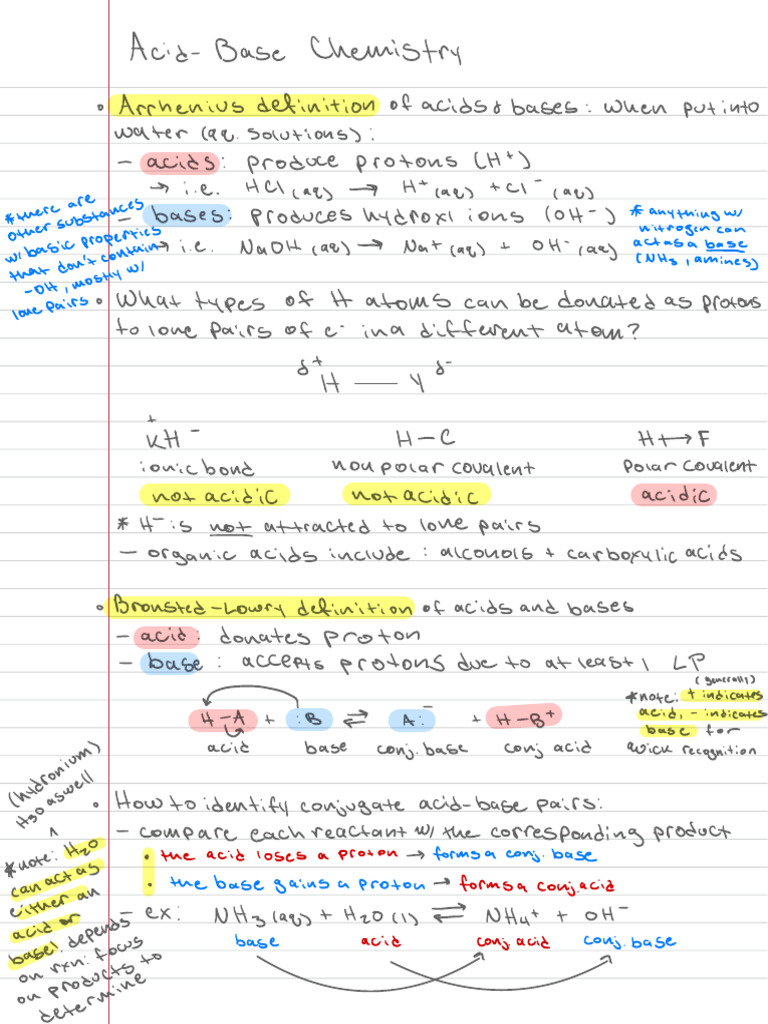 Acid-Base Chemistry
• Arrhenius definition of acids & bases: when put into
water (aq. solutions):
- acids: produce protons (H⁺)
→ i.e. HCl (aq) → H⁺ (aq) + Cl⁻ (aq)
- bases: produces hydroxl ions (OH⁻)
→ i.e. NaOH (aq) → Na⁺ (aq) + OH⁻ (aq)
* there are
other substances
w/ basic properties
that don't contain
-OH, mostly w/
lone pairs
* anything w/
nitrogen can
act as a base
(NH₃, amines)
• What types of H atoms can be donated as protons
to lone pairs of e⁻ in a different atom?
δ⁺ H — Y δ⁻
K⁺H⁻ H-C H↦F
ionic bond nonpolar covalent polar covalent
not acidic not acidic acidic
* H⁻ is not attracted to lone pairs
- organic acids include: alcohols + carboxylic acids
• Bronsted-Lowry definition of acids and bases
- acid: donates proton
- base: accepts protons due to at least 1 LP
H-A + :B ⇌ A:⁻ + H-B⁺
acid base conj. base conj acid
(generally)
* note: + indicates
acid, - indicates
base for
quick recognition
• How to identify conjugate acid-base pairs:
- compare each reactant w/ the corresponding product
• the acid loses a proton → forms a conj. base
• the base gains a proton → forms a conj. acid
- ex: NH₃ (aq) + H₂O (l) ⇌ NH₄⁺ + OH⁻
base acid conj acid conj. base
(hydronium)
H3O as well
^
* note: H₂O
can act as
either an
acid or
base! depends
on rxn: focus
on products to
determine